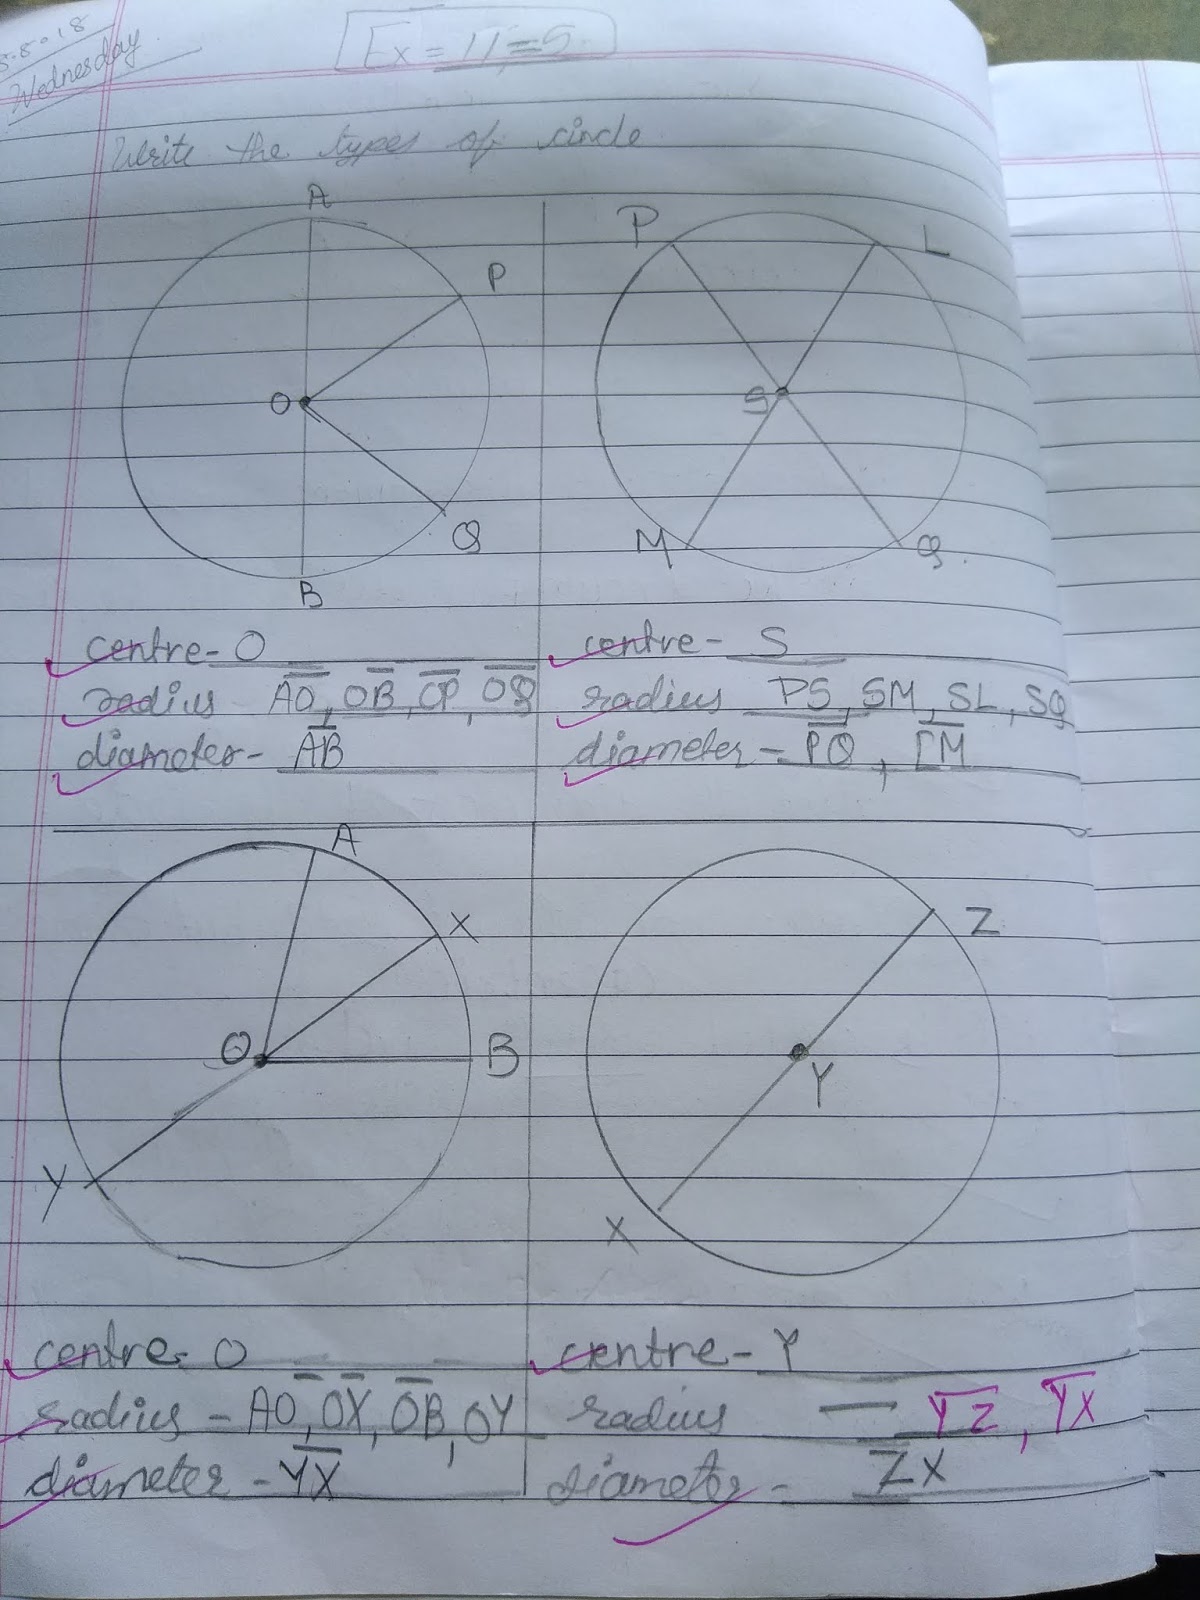 5.18
Wednesday
Ex = 11 = 5
Write the types of circle
A
P
O
Q
B
P
L
S
M
Q
centre - O
radius - AO, OB, OP, OQ
diameter - AB
centre - S
radius PS, SM, SL, SQ
diameter - PQ, LM
A
X
O
B
Y
Z
Y
X
centre - O
radius - AO, OX, OB, OY
diameter - YX
centre - Y
radius — YZ, YX
diameter - ZX